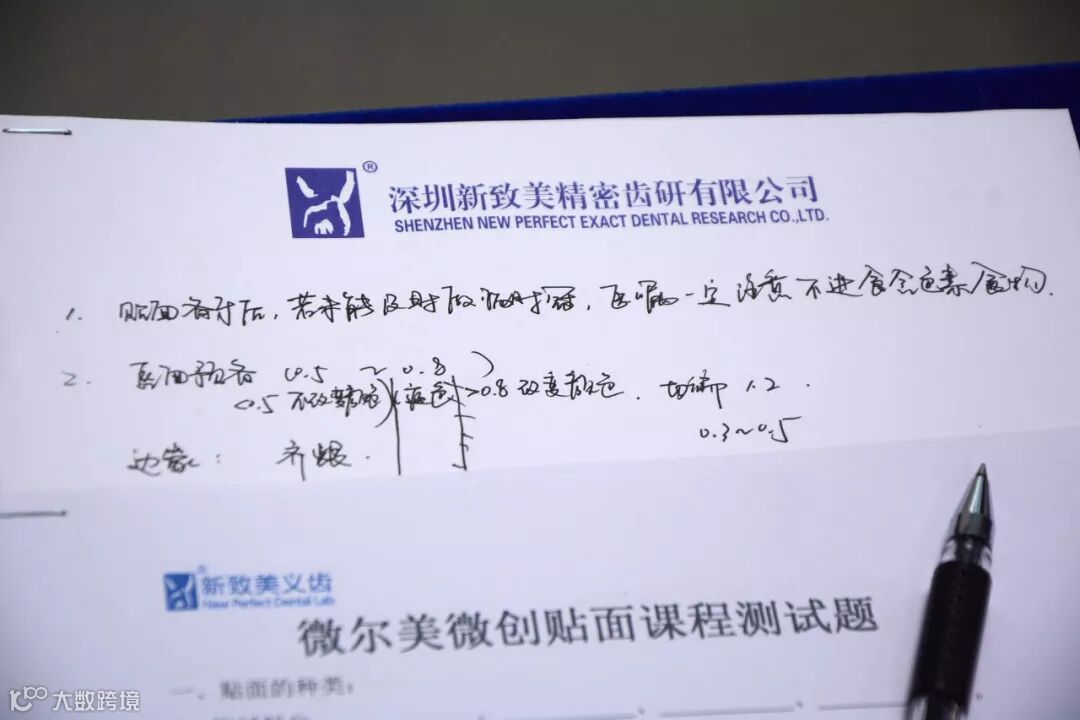 ®
深圳新致美精密齿研有限公司
SHENZHEN NEW PERFECT EXACT DENTAL RESEARCH CO.,LTD.
1. 贴面备牙后，若未能及时做临时冠，医嘱一定注意不进食含色素食物.
2. 唇面预备 (0.5 ~ 0.8 )
<0.5 不改 >0.8 改变颜色. 切端 1.2.
0.3~0.5
边缘: 齐龈.
新致美义齿
New Perfect Dental Lab
微尔美微创贴面课程测试题
一、贴面的种类:
大数跨境